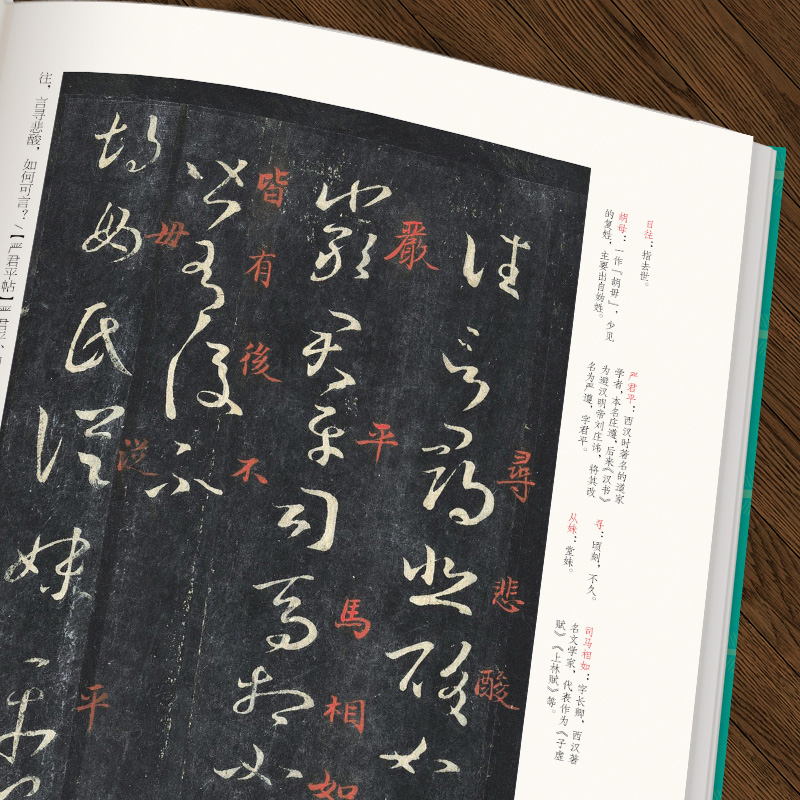 日往：指去世。
胡母：一作「胡毋」，少见
的复姓，主要出自妫姓。
严君平：西汉时著名的道家
学者，本名庄遵，后来《汉书》
为避汉明帝刘庄讳，将其改
名为严遵，字君平。
寻：顷刻，不久。
从妹：堂妹。
司马相如：字长卿，西汉著
名文学家，代表作为《子虚
赋》《上林赋》等。
往言尋悲酸如
尋
悲
酸
嚴君平司馬相如
嚴
平
馬
相
如
皆有後不
皆
有
後
不
胡母氏從妹平
毋
從
平
往，言寻悲酸，如何可言？/【严君平帖】严君平、